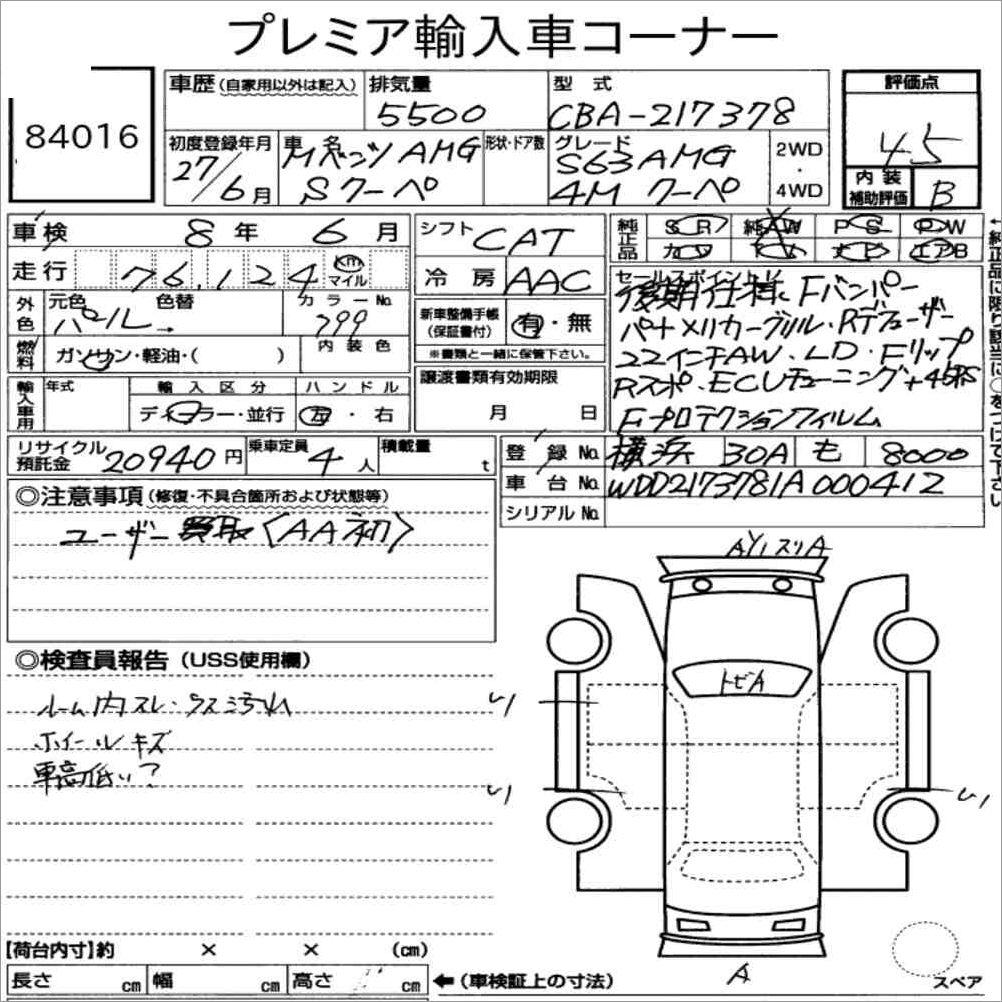 プレミア輸入車コーナー
84016
車歴 (自家用以外は記入)
排気量 5500
型式 CBA-217378
評価点 4.5
初度登録年月 27/6月
車名 Mベンツ AMG Sクーペ
形状・ドア数
グレード S63AMG 4M クーペ
2WD・4WD
内装補助評価 B
車検 8年 6月
シフト CAT
純正品 SR 純AW PS PW
カワ エアB
走行 76,124 km マイル
冷房 AAC
外色 元色 パール 色替 → カラーNo. 799
新車整備手帳(保証書付) 有・無
※書類と一緒に保管下さい。
セールスポイント
後期仕様 Fバンパー
パナメリカーグリル・Rデフューザー
22インチAW・LD・Fリップ
Rスポ・ECUチューニング+45PS
Fプロテクションフィルム
燃料 ガソリン・軽油・( )
内装色
輸入車用 年式 輸入区分 ディーラー・並行 ハンドル 左・右
譲渡書類有効期限 月 日
リサイクル預託金 20940円
乗車定員 4人
積載量 t
登録No. 横浜 30A も 8000
車台No. WDD2173781A000412
シリアルNo.
↑純正品に限り該当に○をつけて下さい
◎注意事項 (修復・不具合箇所および状態等)
ユーザー買取〈AA初〉
◎検査員報告 (USS使用欄)
ルーム内スレ・ 汚れ
ホイールキズ
車高低い?
AY1 スリA
トビA
A
スペア
【荷台内寸】約 × × (cm)
長さ cm 幅 cm 高さ cm ←(車検証上の寸法)